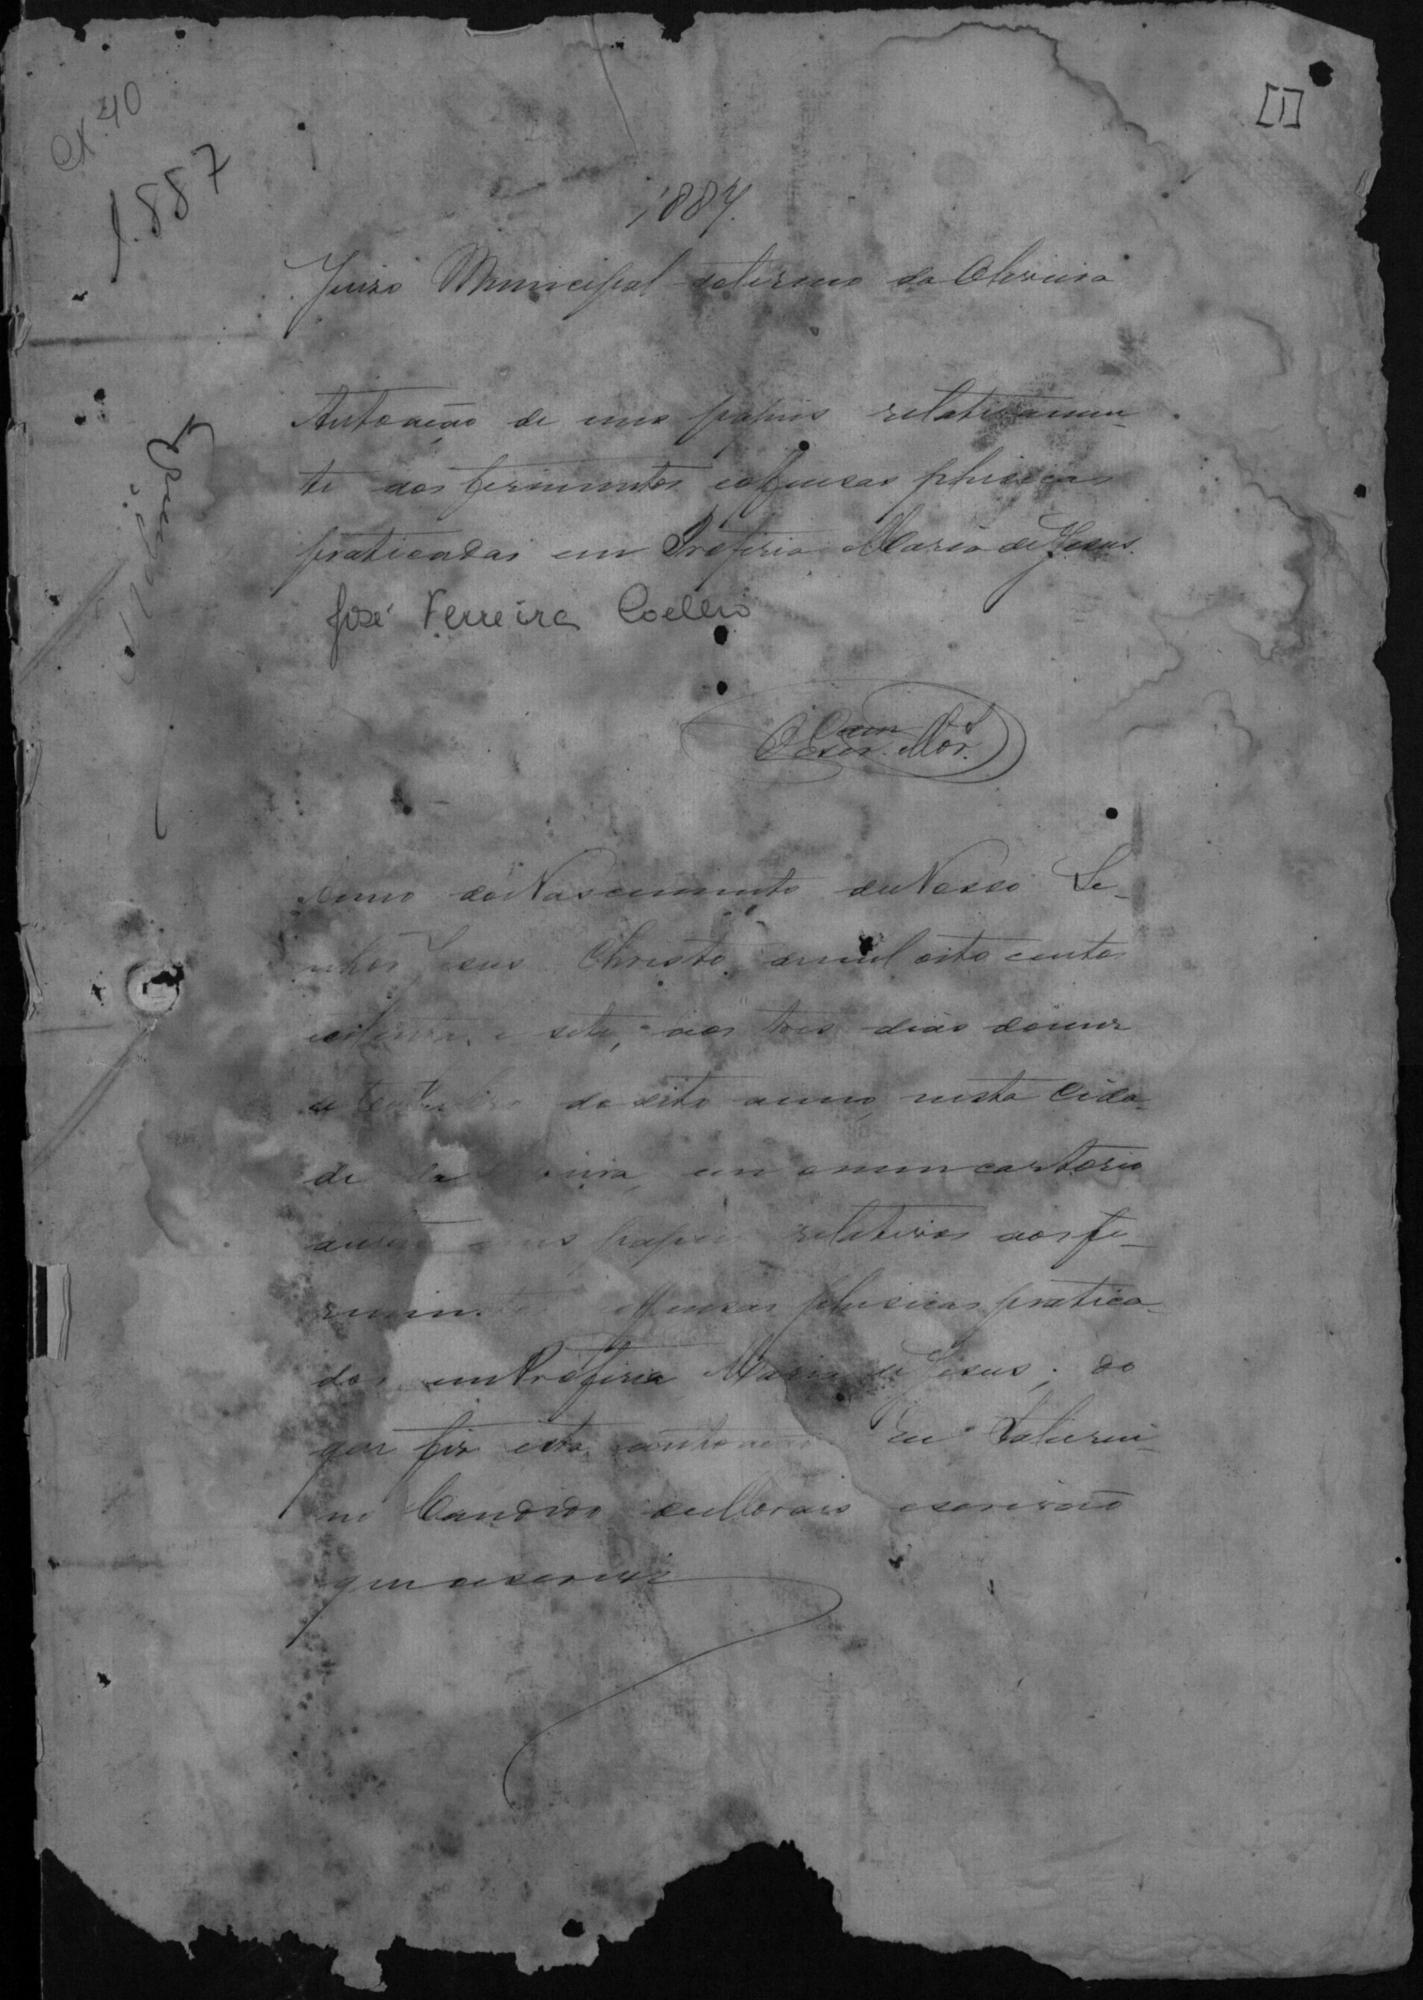 Cx. 40
1.887
[1]
1887.
Juizo Municipal do termo da Oliveira
Autoação de uns papeis relativamen-
te aos ferimentos e offensas phisicas
praticadas em Profiria Maria de Jesus.
José Ferreira Coelho
Escr. Mór.
Anno do Nascimento de Nosso Se-
nhor Jesus Christo de mil oito centos
e oitenta e sete, aos tres dias do mez
de do dito anno, nesta Cida-
de da em o meu cartorio
papeis relativos aos fe-
rimentos offensas phisicas pratica-
das em Profiria Maria de Jesus; do
que fiz esta autoação Eu Saturni-
no Candido de Moraes escrivão
que o escrevi